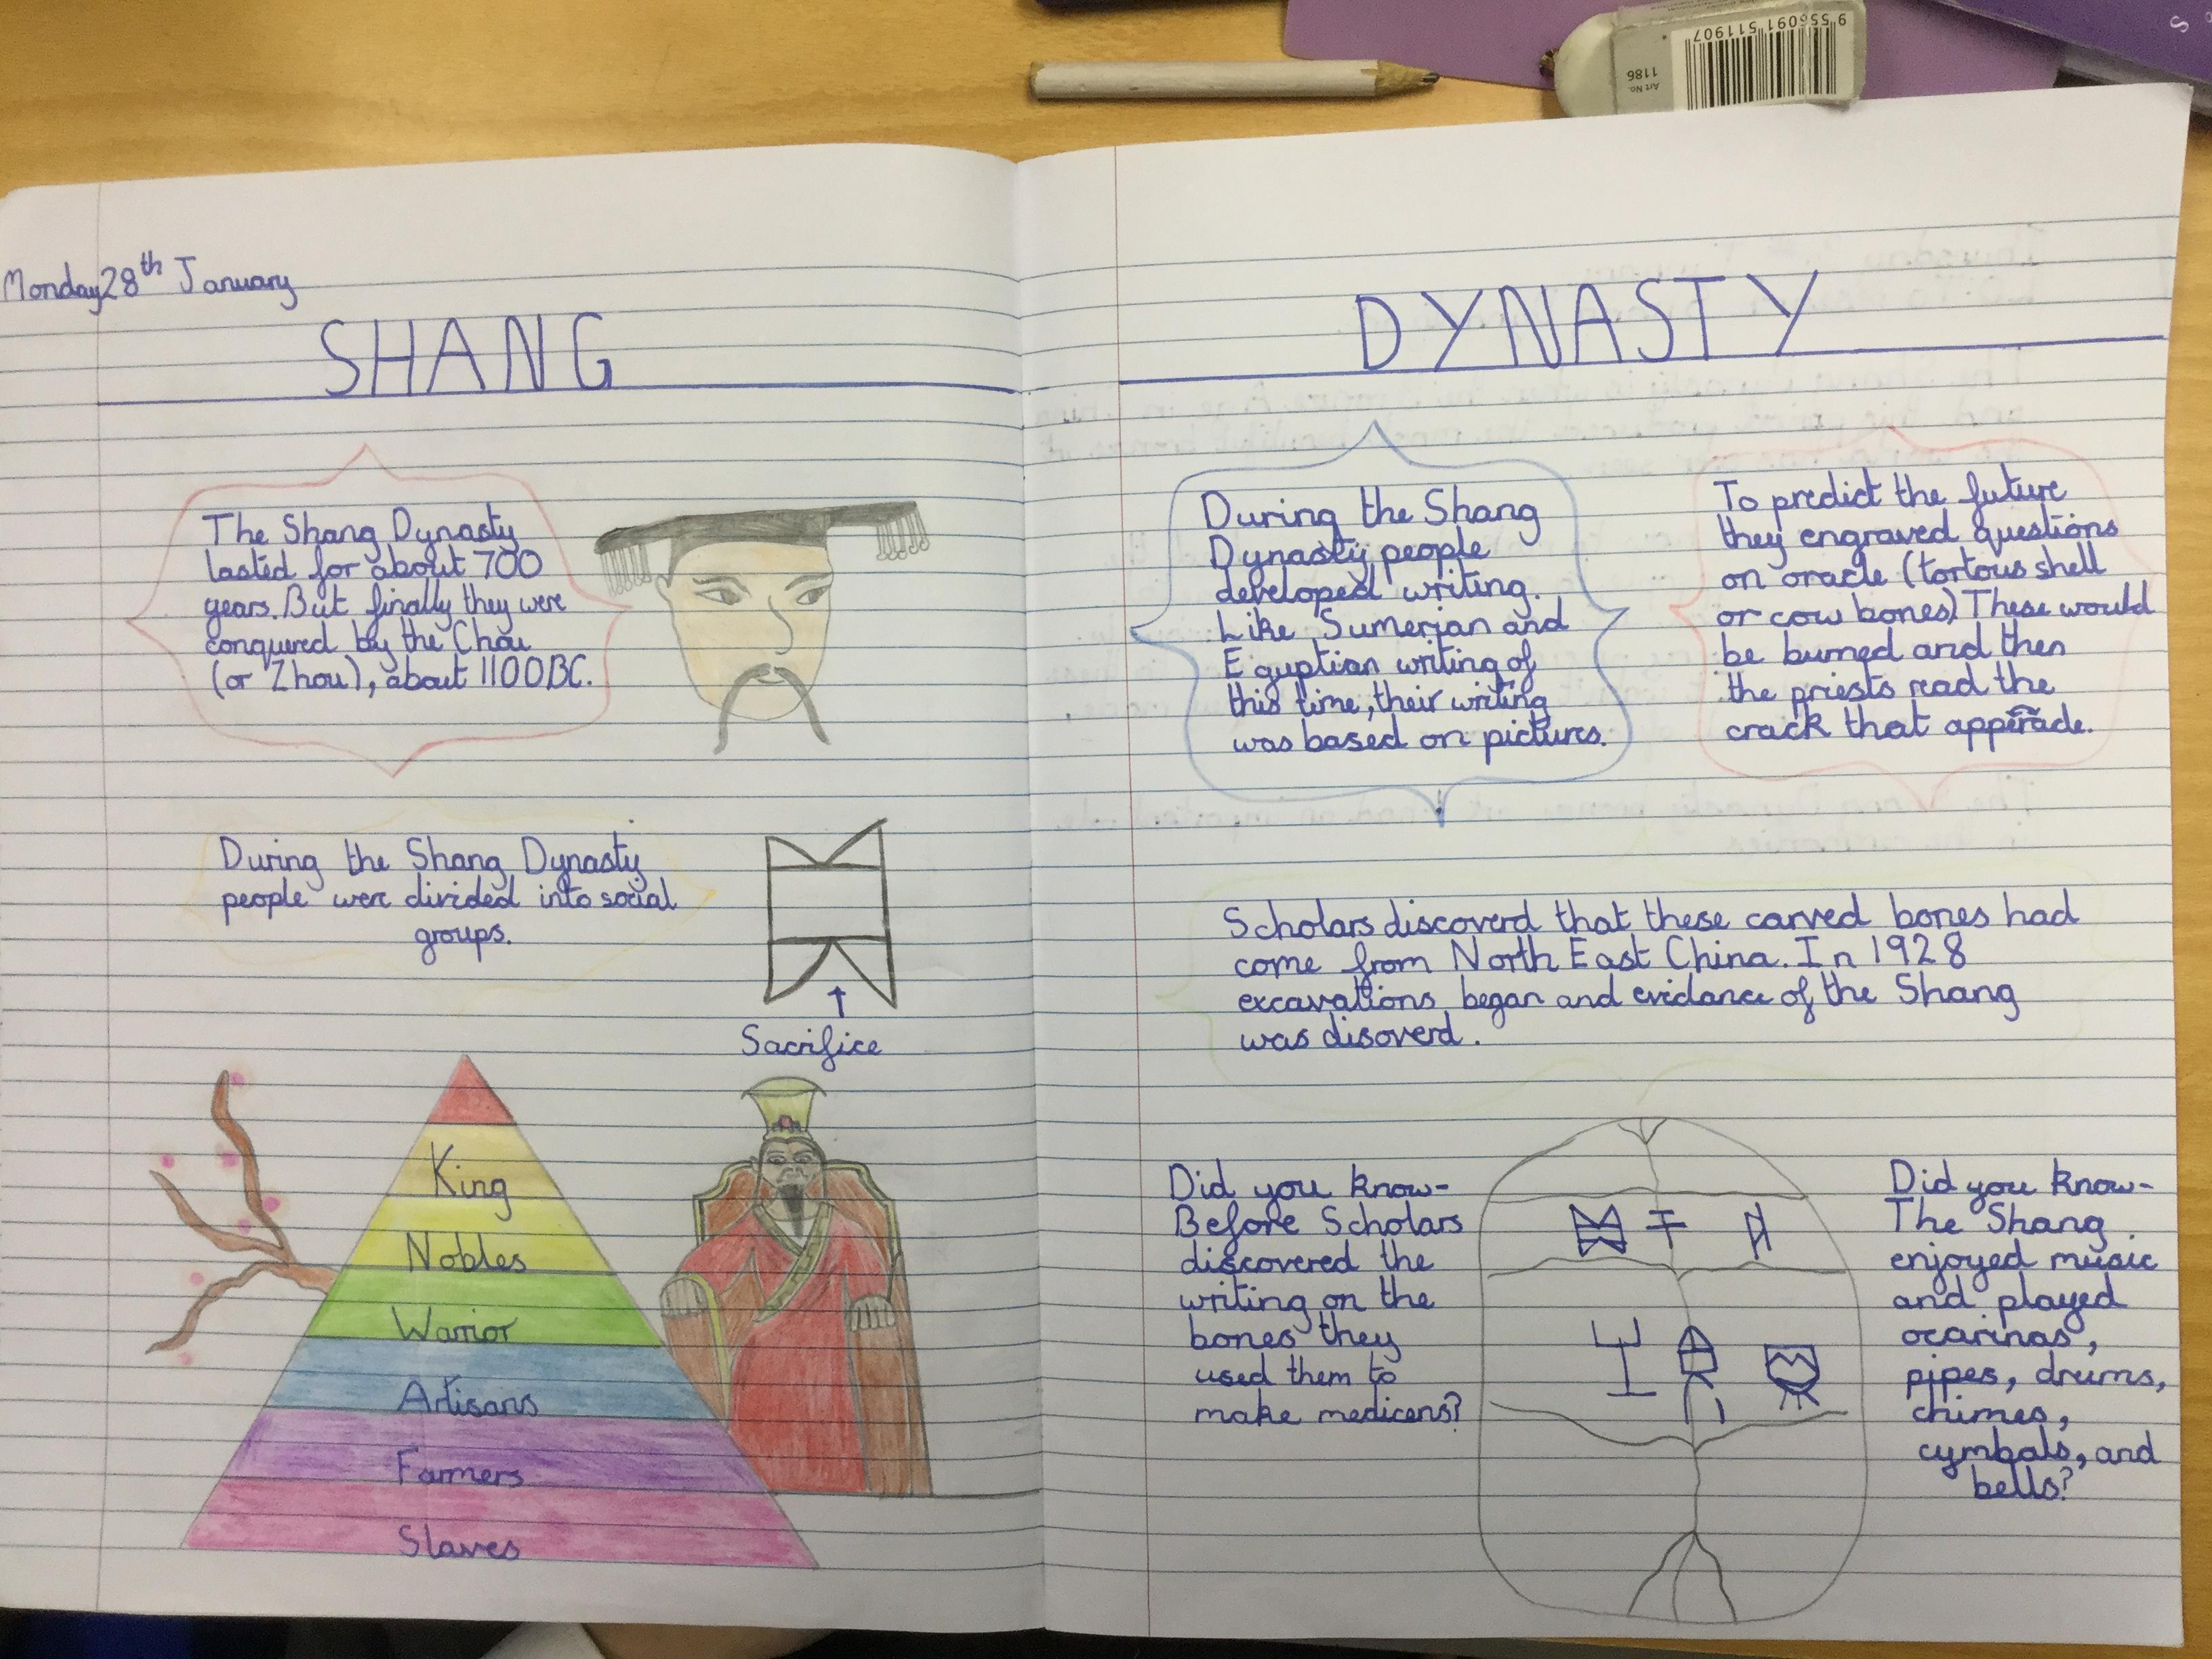 Monday 28th January
SHANG
The Shang Dynasty
lasted for about 700
years. But finally they were
conquered by the Chou
(or Zhou), about 1100BC.
During the Shang Dynasty
people were divided into social
groups.
Sacrifice
King
Nobles
Warrior
Artisans
Farmers
Slaves
DYNASTY
During the Shang
Dynasty people
developed writing.
Like Sumerian and
Eguptian writing of
this time, their writing
was based on pictures.
To predict the future
they engraved questions
on oracle (tortous shell
or cow bones) These would
be burned and then
the priests read the
crack that apperade.
Scholars discoverd that these carved bones had
come from North East China. In 1928
excavations began and evidance of the Shang
was disoverd.
Did you know-
Before Scholars
discovered the
writing on the
bones they
used them to
make medicens?
Did you know-
The Shang
enjoyed music
and played
ocarinas,
pipes, drums,
chimes,
cymbals, and
bells?
9 556091 511907
Art No.
1186
S